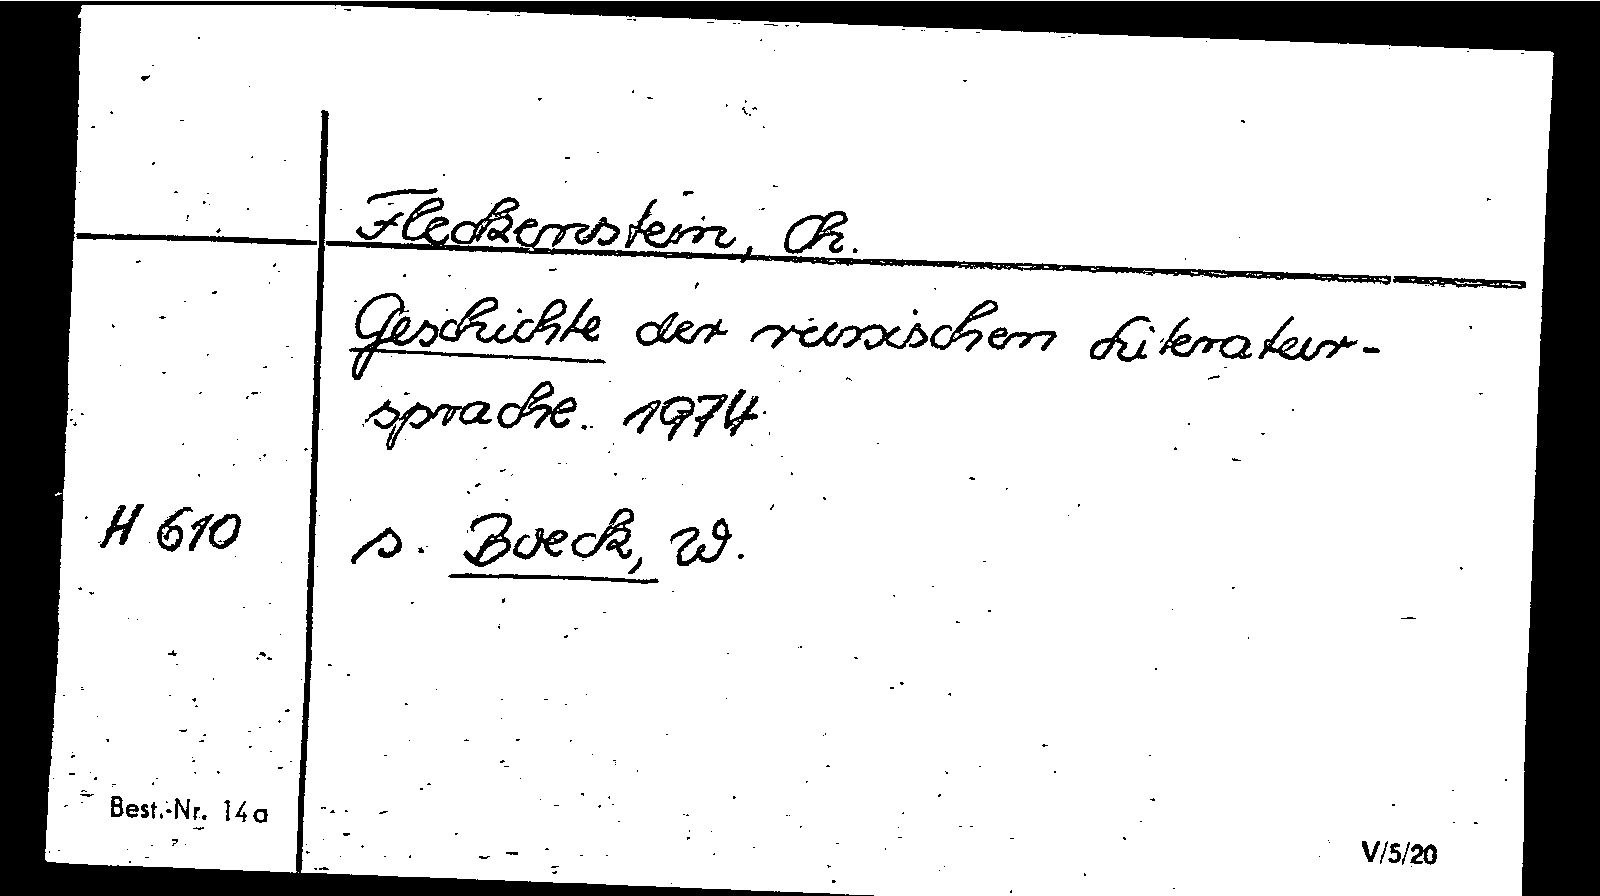 Fleckenstein, Ch.
Geschichte der russischen Literatur-
sprache. 1974
H 610 s. Boeck, W.
Best.-Nr. 14a
V/5/20